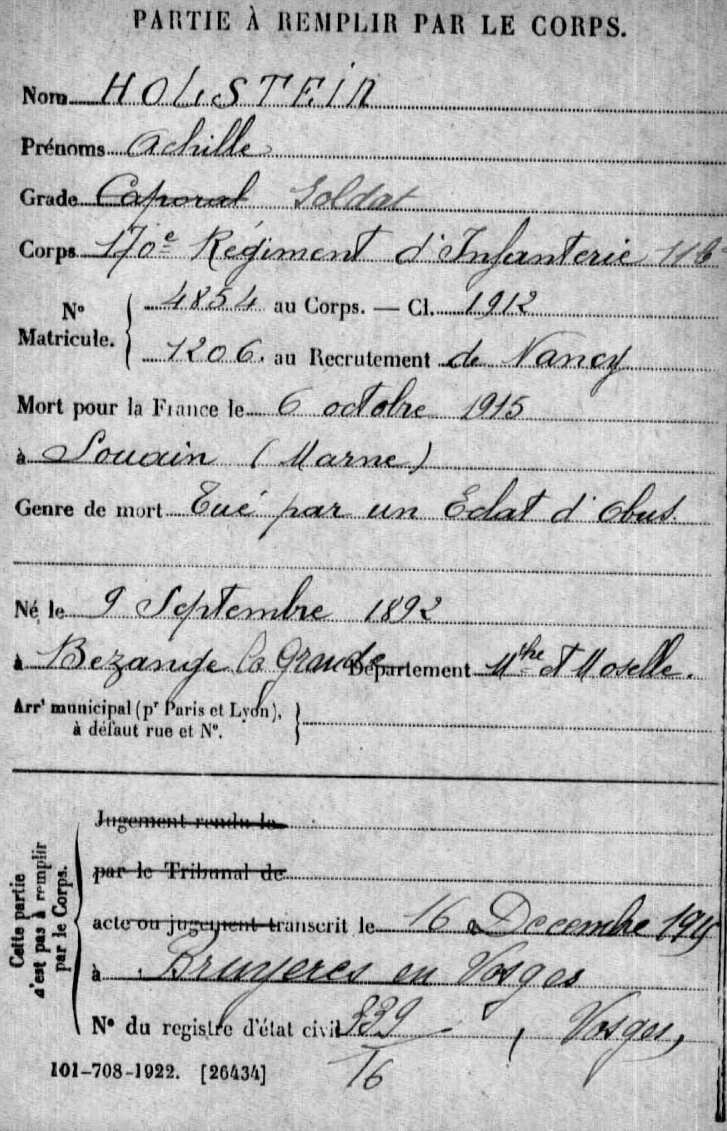 PARTIE À REMPLIR PAR LE CORPS.
Nom HOLSTEIN
Prénoms Achille
Grade Caporal Soldat
Corps 170e Régiment d'Infanterie
N° Matricule. 4854 au Corps. — Cl. 1912
1206. au Recrutement de Nancy
Mort pour la France le 6 octobre 1915
à Souain (Marne)
Genre de mort Tué par un Eclat d'Obus.
Né le 9 Septembre 1892
à Bezange la Grande Département Mthe et Moselle.
Arrt municipal (pr Paris et Lyon),
à défaut rue et N°.
Cette partie n'est pas à remplir par le Corps.
Jugement rendu le
par le Tribunal de
acte ou jugement transcrit le 16 Decembre 1915
à Bruyeres en Vosges
N° du registre d'état civil 339 Vosges,
16
101-708-1922. [26434]